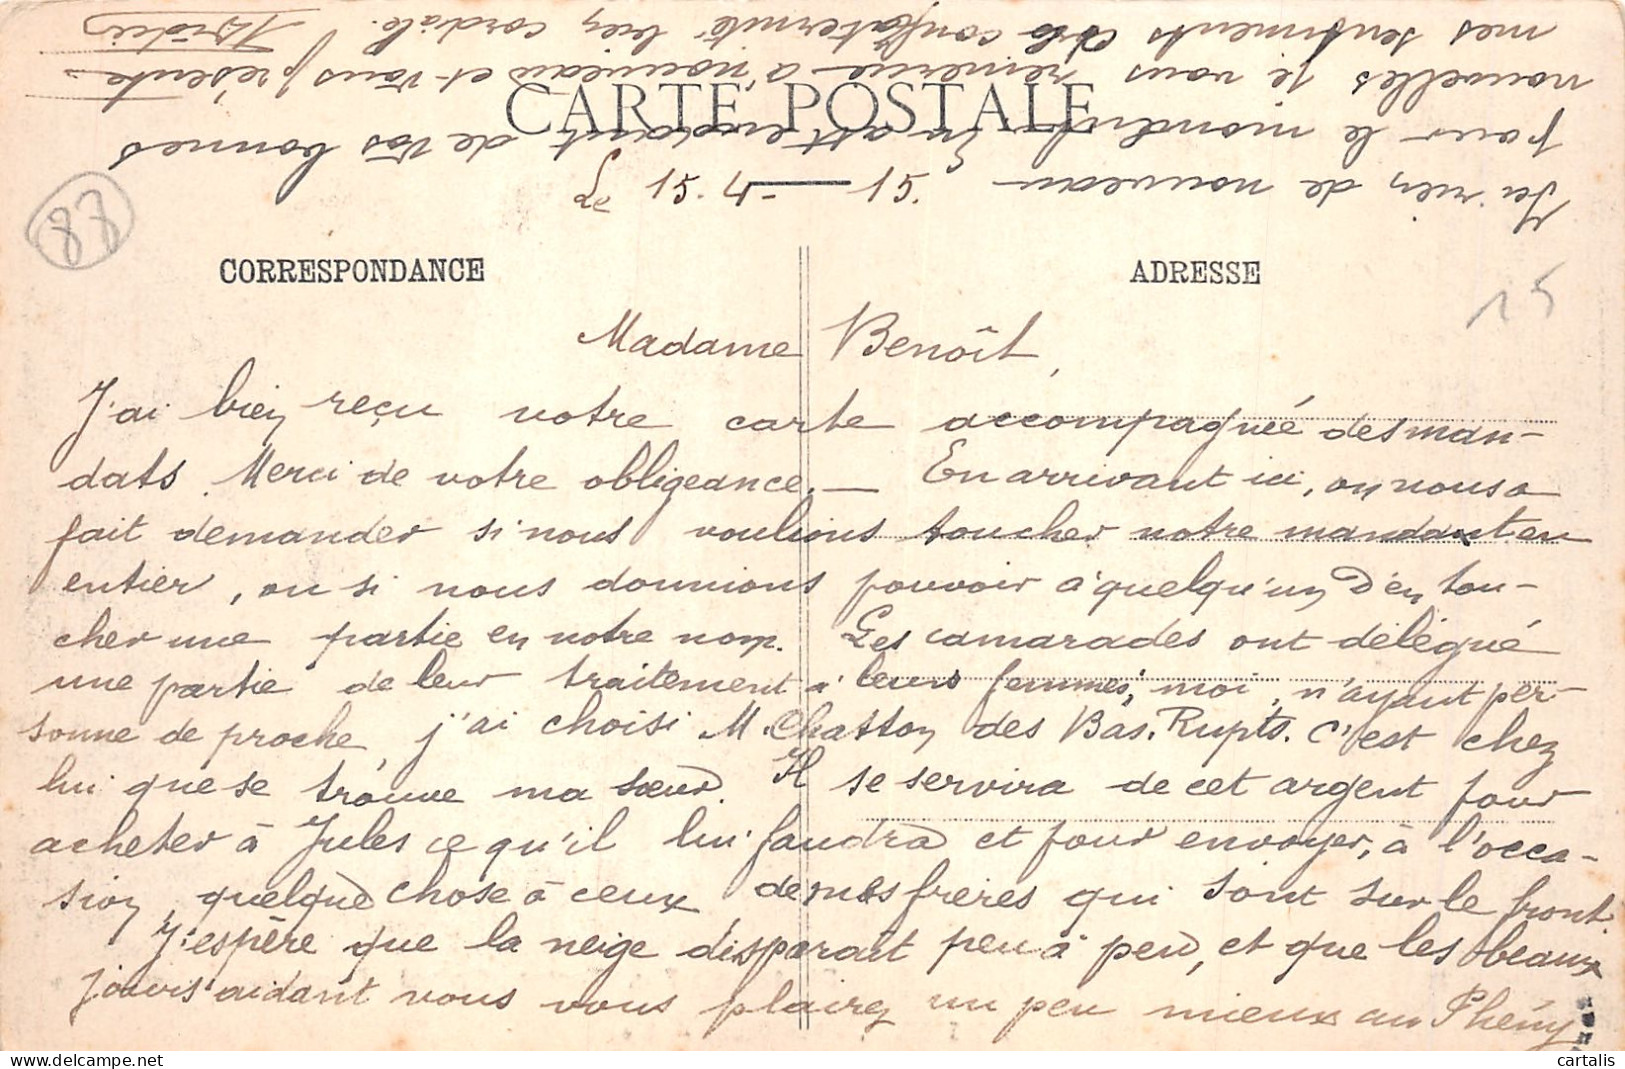 CARTE POSTALE
Le 15.4-15.
88
CORRESPONDANCE
ADRESSE
15
Madame Benoît,
J'ai bien reçu votre carte accompagnée des man-
dats. Merci de votre obligeance. — En arrivant ici, on nous a
fait demander si nous voulions toucher notre mandant en
entier, ou si nous donnions pouvoir à quelqu'un d'en tou-
cher une partie en notre nom. Les camarades ont délégué
une partie de leur traitement à leurs femmes; moi, n'ayant per-
sonne de proche, j'ai choisi M. Chatton des Bas. Rupts. C'est chez
lui que se trouve ma sœur. Il se servira de cet argent pour
acheter à Jules ce qu'il lui faudra et pour envoyer, à l'occa-
sion, quelque chose à ceux de mes frères qui sont sur le front.
J'espère que la neige disparaît peu à peu, et que les beaux
jours aidant vous vous plairez un peu mieux au Phény
Ici rien de nouveau
pour le moment. En attendant de vos bonnes
nouvelles je vous remercie à nouveau et vous présente
mes sentiments de confraternité bien cordiale.
cartalis